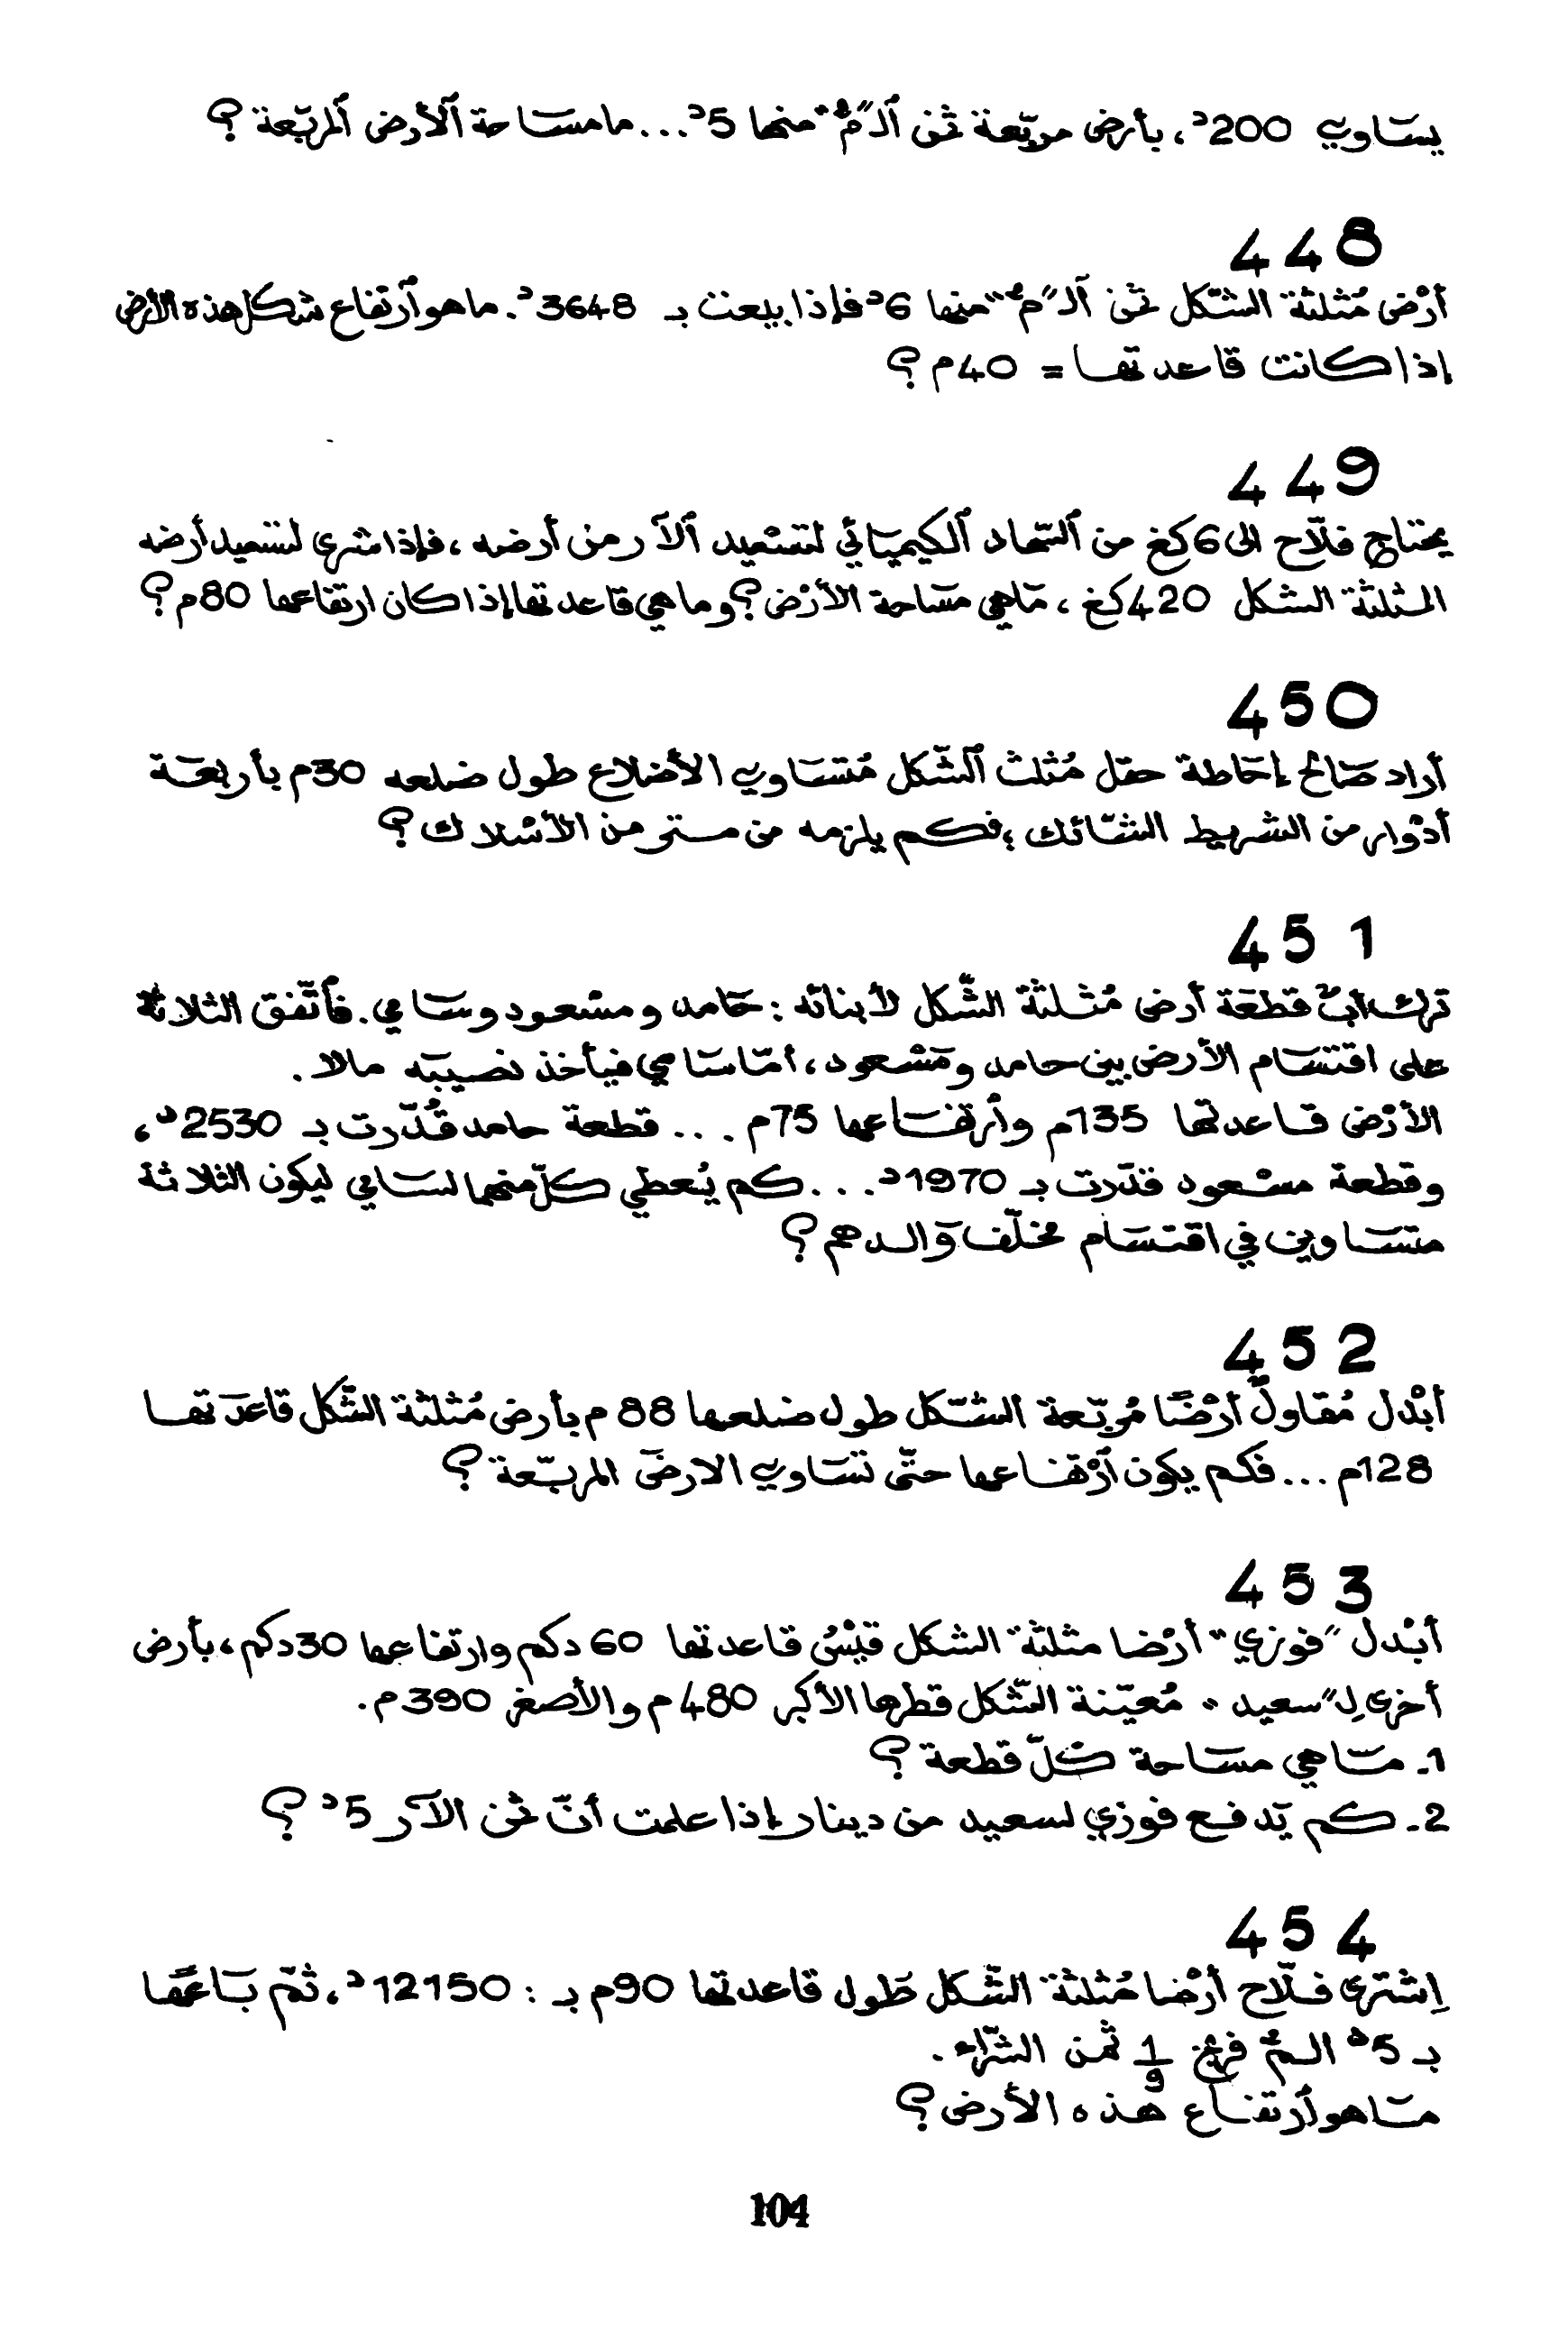 يسَاوي 200د، بأرض مربّعة ثمن ٱلـ"م²" منها 5د... ما مسَاحة ٱلأرض ٱلمربّعة ؟
448
أرْض مُثلثة الشّكل ثمن ٱلـ"م²" منها 6د فإذا بيعت بـ 3648د. ما هو ٱرتفاع شكل هذه الأرض
إذا كانت قاعدتها = 40م ؟
449
يحتاج فلّاح الى 6كغ من ٱلسّماد ٱلكيميَائي لتسْميد ٱلآر من أرضه ، فإذا شرى لتسميد أرضه
المثلثة الشكل 420كغ ، مَاهي مسَاحة الأرْض ؟ وما هي قاعدتها إذا كان ارتفاعها 80م ؟
450
أراد صَالح إحَاطة حقل مُثلث ٱلشّكل مُتسَاوي الأضلاع طول ضلعه 30م بأربعَة
أدْوار من الشريط الشّائك ؛ فكم يلزمه من متر من الأسْلاك ؟
451
ترك أبٌ قطعَة أرض مُثلثَة الشّكل لأبنائه : حَامد ومسْعود وسَامي. فٱتّفق الثلاثة
على اقتسَام الأرض بين حامد ومَسْعود ، أمّا سَامي فيأخذ نصيبَه مالا .
الأرْض قاعدتها 135م وٱرتفاعها 75م ... قطعة حامد قُدّرت بـ 2530د ،
وقطعة مسْعود قدّرت بـ 1970د ... كم يُعطي كلّ منهما لسَامي ليكون الثلاثة
متسَاوين في اقتسَام مخلّف وَالدهم ؟
452
أبْدل مُقاولٌ أرْضًا مُربّعة الشّكل طول ضلعها 88 م بأرض مُثلثة الشّكل قاعدَتها
128م ... فكم يكون ٱرْتفاعها حتّى تسَاوي الارضَ المربّعة ؟
453
أبْدل "فوزي" أرْضا مثلثة الشكل قيْسُ قاعدتها 60 دكم وارتفاعها 30دكم ، بأرض
أخرى لِـ"سعيد" مُعيّنة الشّكل قطرها الأكبر 480م والأصغر 390م .
1ـ مَاهي مسَاحة كلّ قطعة ؟
2ـ كم يَدفع فوزي لسعيد من دينار إذا علمت أنّ ثمن الآر 5د ؟
454
اِشترى فلّاح أرْضا مُثلثة الشّكل طَول قاعدتها 90م بـ : 12150د ، ثمّ بَاعَها
بـ 5د الـم² فربح 1/9 ثمن الشّراء .
مَا هو ٱرتفاع هذه الأرض ؟
104